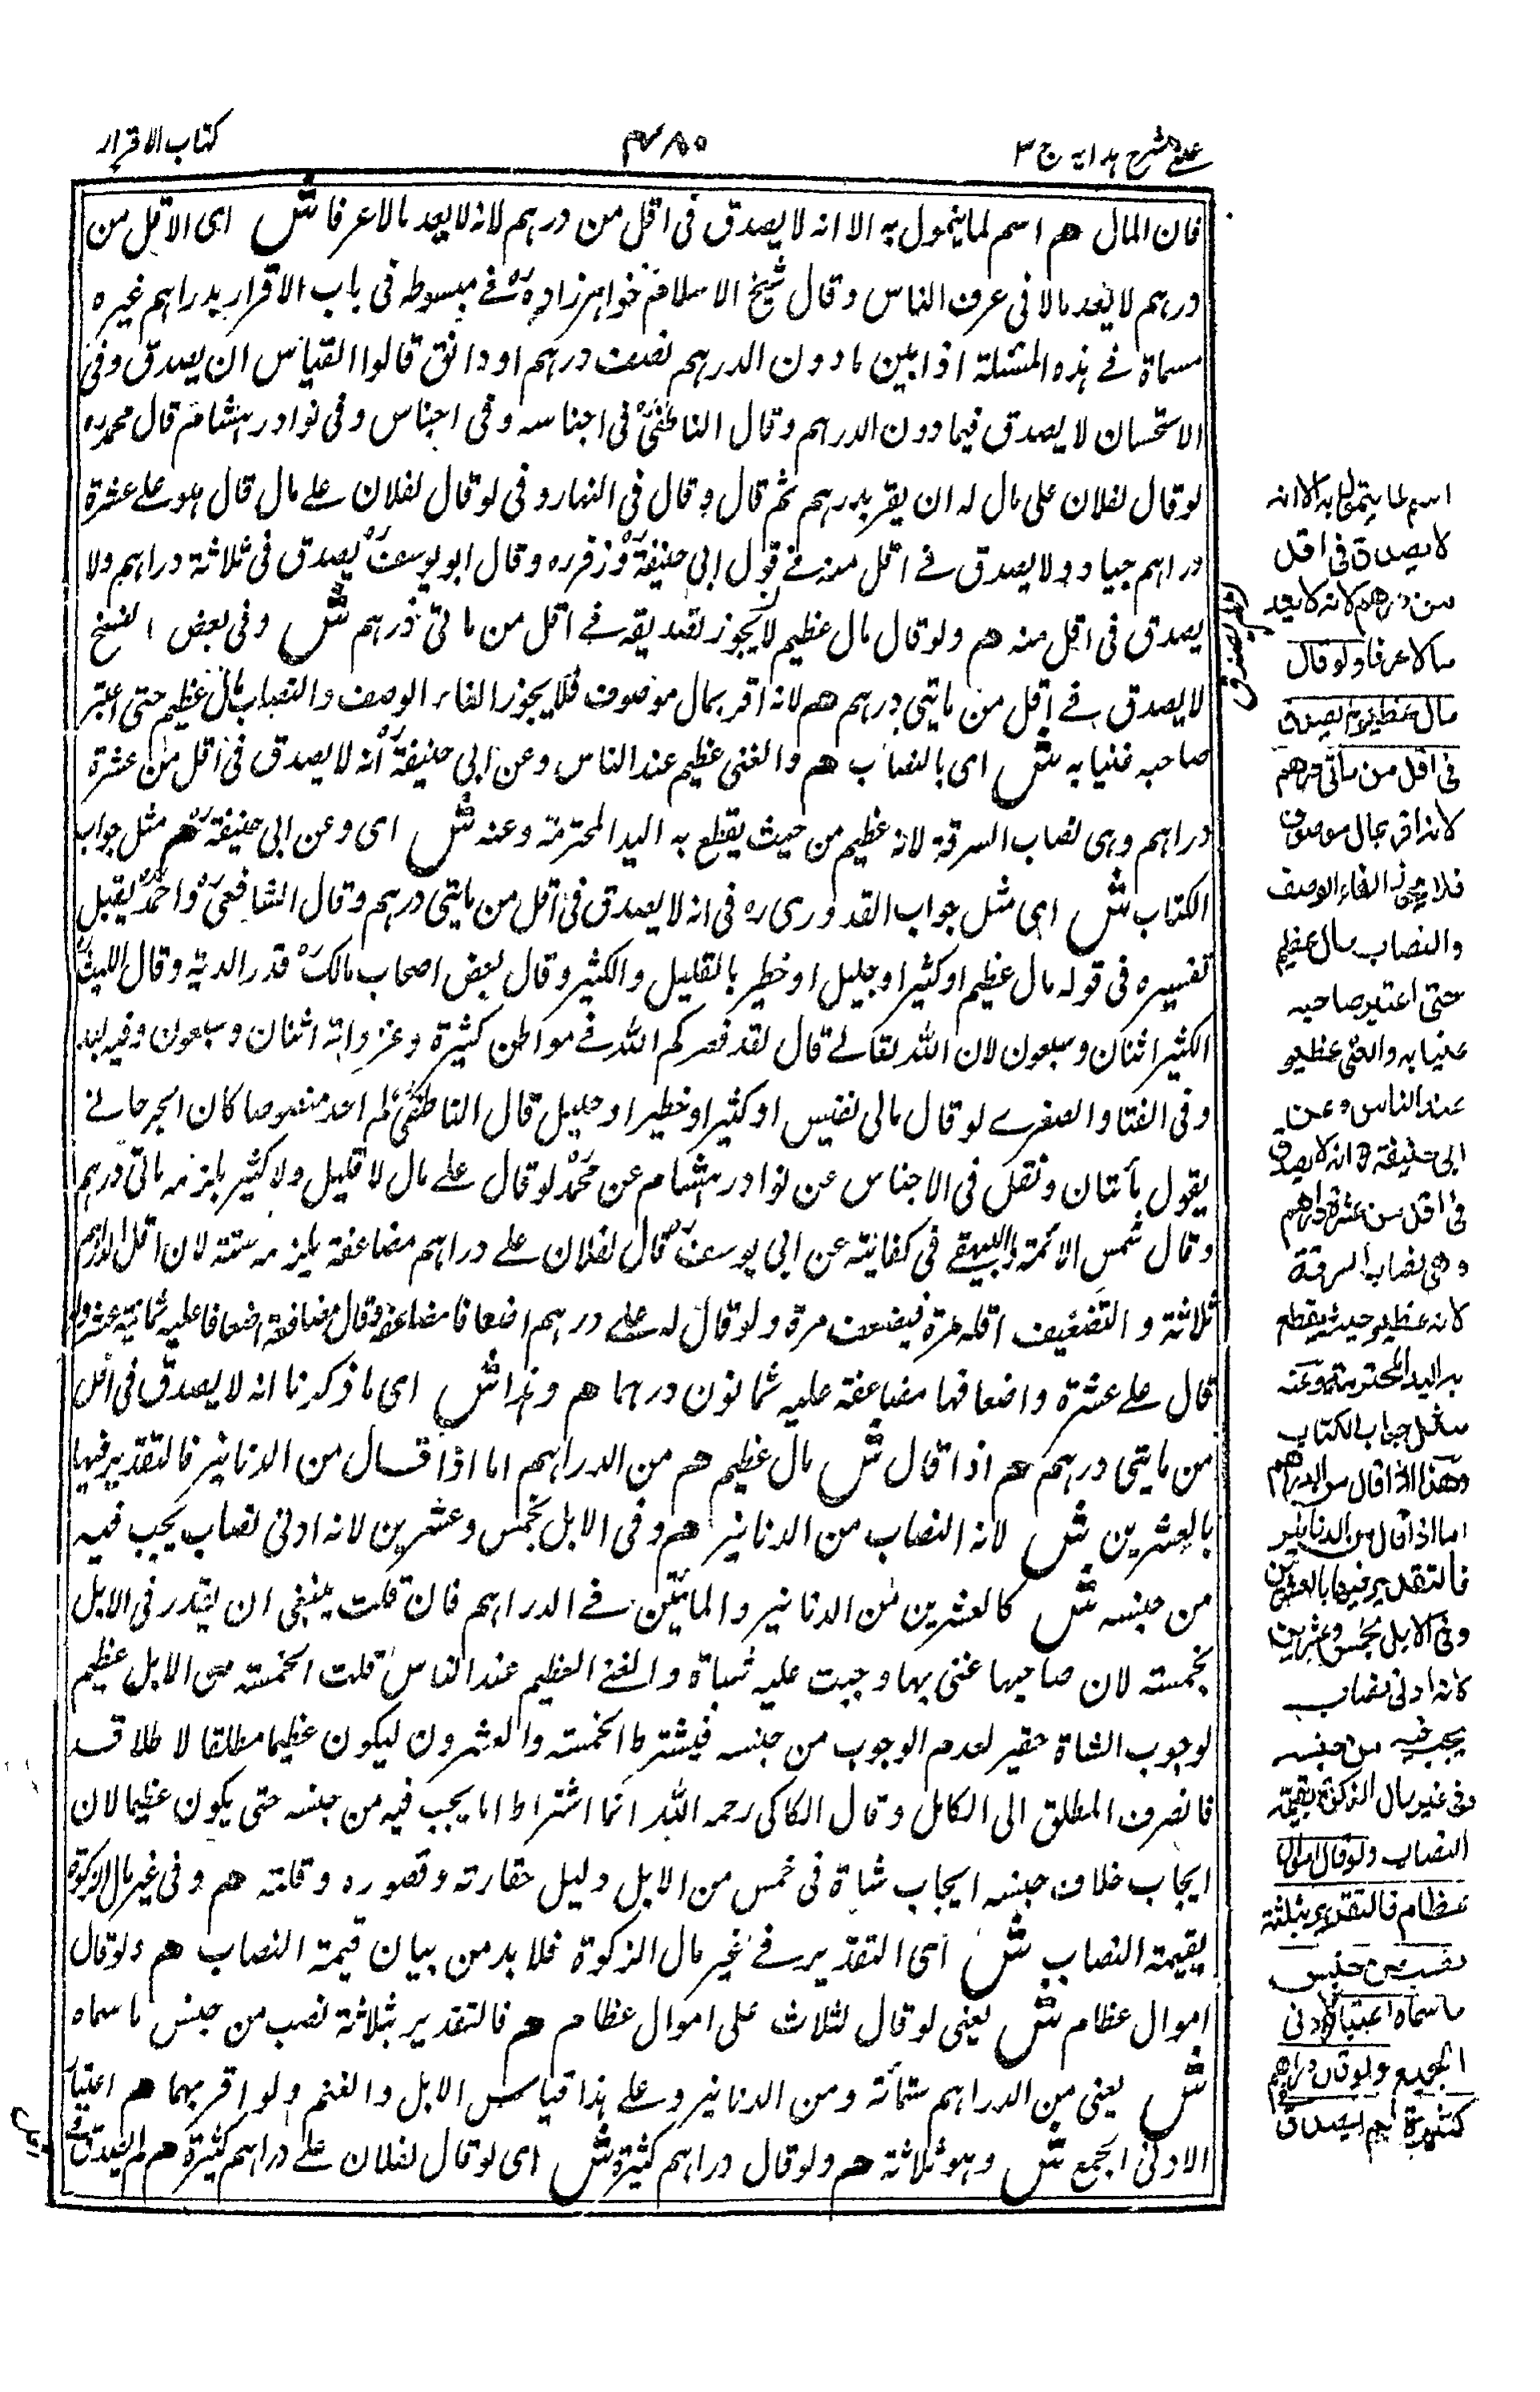 عينے شرح ہدایہ ج ٣
٤٨٥
كتاب الاقرار
فان المال هم اسم لما يتمول به الا انه لا يصدق فی اقل من درہم لانه لا يعد مالا عرفا ش ای الاقل من
درہم لا يعد مالا فی عرف الناس وقال شيخ الاسلام خواہرزادہ رح فے مبسوطه فی باب الاقرار بدراہم غيرہ
مسماة فے ہذہ المسئلة اذا بين ما دون الدرہم نصف درہم او دانق قالوا القياس ان يصدق وفی
الاستحسان لا يصدق فيما دون الدرہم وقال الناطفی رح فی اجناسه وفی اجناس وفی نوادر ہشام قال محمد رہ
لو قال لفلان علی مال له ان يقر بدرہم ثم قال وقال فی النہار وفی لو قال لفلان علے مال قال ہو علے عشرة
دراہم جياد ولا يصدق فے اقل منه فے قول ابی حنيفة رح وزفر رہ وقال ابو يوسف رح يصدق فی ثلاثة دراہم ولا
يصدق فی اقل منه هم ولو قال مال عظيم لا يجوز تصديقه فے اقل من مائتی درہم ش وفی بعض النسخ
لا يصدق فے اقل من مايتی درہم هم لانه اقر بمال موصوف فلا يجوز الغاء الوصف والنصاب مال عظيم حتی اعتبر
صاحبه غنيا به ش ای بالنصاب هم والغنی عظيم عند الناس وعن ابی حنيفة رح انه لا يصدق فی اقل من عشرة
دراہم وہی نصاب السرقة لانه عظيم من حيث يقطع به اليد المحترمة وعنه ش ای وعن ابی حنيفة رح هم مثل جواب
الكتاب ش ای مثل جواب القدوری رہ فی انه لا يصدق فی اقل من مايتی درہم وقال الشافعی رح واحمد رح يقبل
تفسيرہ فی قوله مال عظيم او كثير او جليل او خطير بالقليل والكثير وقال بعض اصحاب مالك رح قدر الدية وقال الليث رح
الكثير اثنان وسبعون لان اللہ تعالے قال لقد نصركم اللہ فے مواطن كثيرة وغزواته اثنان وسبعون وفيه
وفی الفتاوا الصغرے لو قال مالی نفيس او كثير او خطير او جليل قال الناطفی رح لم اجد منصوصا كان الجرجانے
يقول مأتان ونقل فی الاجناس عن نوادر ہشام عن محمد رح لو قال علے مال لا قليل ولا كثير يلزمه مائتی درہم
وقال شمس الائمة البيہقے فی كفايته عن ابی يوسف رح قال لفلان علے دراہم مضاعفة يلزمه ستة لان اقل الدراہم
ثلاثة والتضعيف اقله مرة فيضعف مرة ولو قال له علے درہم اضعافا مضاعفة وقال مضاعفة اضعافا عليه ثمانية عشر ولو
قال علے عشرة واضعافها مضاعفة عليه ثمانون درہما هم وہذا ش ای ما ذكرنا انه لا يصدق فی اقل
من مايتی درہم هم اذا قال ش مال عظيم هم من الدراہم اما اذا قال من الدنانير فالتقدير فيہا
بالعشرين ش لانه النصاب من الدنانير هم وفی الابل بخمس وعشرين لانه ادنی نصاب يجب فيه
من جنسه ش كالعشرين من الدنانير والمائتين فے الدراہم فان قلت ينبغی ان يقدر فی الابل
بخمسة لان صاحبہا غنی بہا وجبت عليه شاة والغنے العظيم عند الناس قلت الخمسة من الابل عظيم
لوجوب الشاة حقير لعدم الوجوب من جنسه فيشترط الخمسة والعشرون ليكون عظيما مطلقا لا طلاقه
فانصرف المطلق الی الكامل وقال الكاكی رحمه اللہ انما اشتراط اما يجب فيه من جنسه حتی يكون عظيما لان
ايجاب خلاف جنسه ايجاب شاة فی خمس من الابل دليل حقارته وقصورہ وقلته هم وفی غير مال الزكوة
بقيمة النصاب ش ای التقدير فے غير مال الزكوة فلا بد من بيان قيمة النصاب هم ولو قال
اموال عظام ش يعنی لو قال لثلاث علی اموال عظام هم فالتقدير بثلاثة نصب من جنس ما سماہ
ش يعنی من الدراہم ستمأئة ومن الدنانير وعلے ہذا قياس الابل والغنم ولو اقر بہما هم اعتبار
الادنی الجمع ش وہو ثلاثة هم ولو قال دراہم كثيرة ش ای لو قال لفلان علے دراہم كثيرة هم لم يصدق فے
اسم لما يتمول به الا انه
لا يصدق فی اقل
من درهم لانه لا يعد
مالا عرفا ولو قال
مال عظيم لم يصدق
فی اقل من مأتی درهم
لانه اقر بمال موصوف
فلا يجوز الغاء الوصف
والنصاب مال عظيم
حتی اعتبر صاحبه
غنيا به والغنی عظيم
عند الناس وعن
ابی حنيفة رح انه لا يصدق
فی اقل من عشرة دراهم
وهی نصاب السرقة
لانه عظيم حيث يقطع
به اليد المحترمة وعنه
مثل جواب الكتاب
وهذا اذا قال من الدراهم
اما اذا قال من الدنانير
فالتقدير فيها بالعشرين
وفی الابل بخمس وعشرين
لانه ادنی نصاب
يجب فيه من جنسه
وفی غير مال الزكوة بقيمة
النصاب ولو قال اموال
عظام فالتقدير بثلثة
نصب من جنس
ما سماه اعتبارا لادنی
الجمع ولو قال دراهم
كثيرة لم يصدق